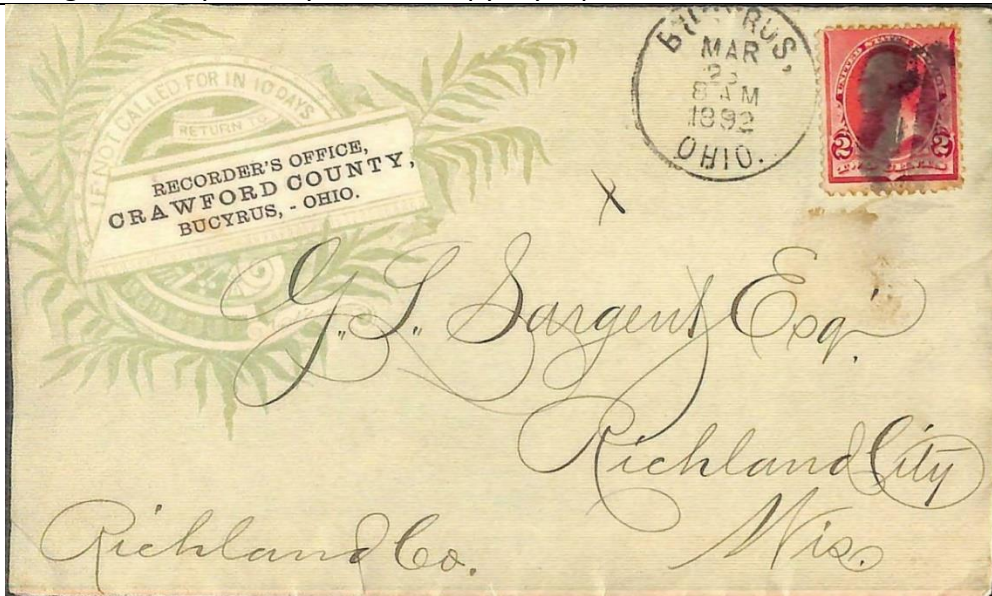 IF NOT CALLED FOR IN 10 DAYS
RETURN TO
RECORDER'S OFFICE,
CRAWFORD COUNTY,
BUCYRUS, - OHIO.
BUCYRUS,
MAR
8 AM
1892
OHIO.
2 2
X
G. L. Sargent Esq.
Richland City
Richland Co. Wis.